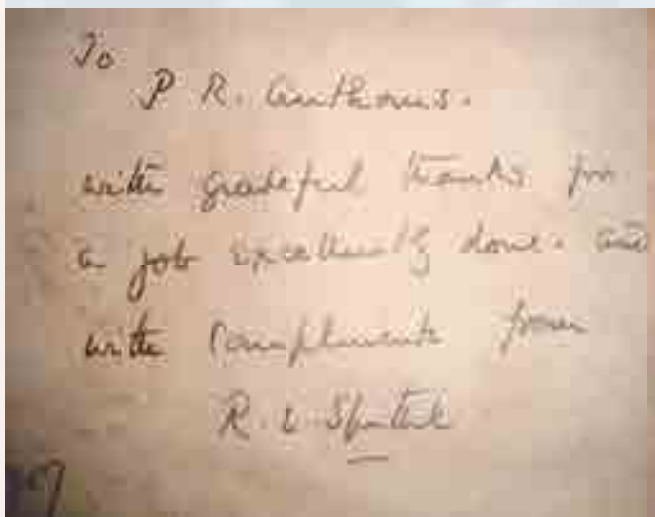 To
P R. Anthonis.
with grateful thanks for
a job excellently done. and
with compliments from
R. L. Spittel